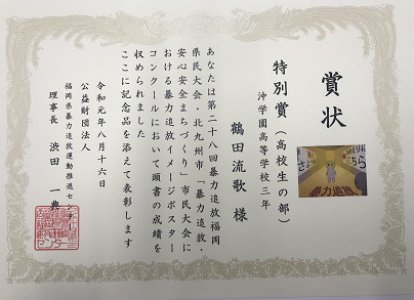 賞状
特別賞（高校生の部）
沖学園高等学校三年
鶴田流歌 様
あなたは第二十八回暴力追放福岡
県民大会・北九州市「暴力追放・
安心安全まちづくり」市民大会に
おける暴力追放イメージポスター
コンクールにおいて頭書の成績を
収められました
ここに記念品を添えて表彰します
令和元年八月十六日
公益財団法人
福岡県暴力追放運動推進センター
理事長 渋田 一典
暴力追放